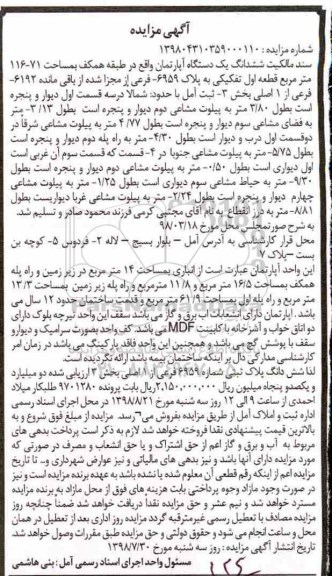 آگهی مزایده
شماره مزایده : ۱۳۹۸۰۴۳۱۰۳۵۹۰۰۰۱۱۰
سند مالکیت ششدانگ یک دستگاه آپارتمان واقع در طبقه همکف بمساحت ۷۱-۱۱۶
متر مربع قطعه اول تفکیکی به پلاک ۶۹۵۹- فرعی از مجزا شده از باقی مانده ۶۱۹۲-
فرعی از ۱ اصلی بخش ۳- ثبت آمل با حدود: شمالا درسه قسمت اول دیوار و پنجره
است بطول ۳/۸۰ متر به پیلوت مشاعی دوم دیوار و پنجره است بطول ۳/۱۳- متر
به فضای مشاعی سوم دیوار و پنجره است بطول ۴/۷۷ متر به پیلوت مشاعی شرقاً در
دوقسمت اول درب و دیوار است بطول ۴/۳۰- متر به راه پله دوم دیوار و پنجره است
بطول ۵/۷۵- متر به پیلوت مشاعی جنوبا در ۴- قسمت که قسمت سوم آن غربی است
اول دیواری است بطول ۰/۵۰- متر به پیلوت مشاعی دوم دیوار و پنجره است بطول
۹/۳۰- متر به حیاط مشاعی سوم دیواری است بطول ۱/۲۵- متر به پیلوت مشاعی
چهارم دیوار و پنجره است بطول ۲/۲۴- متر به پیلوت مشاعی غربا دیواریست بطول
۸/۸۱- متر به درز انقطاع بنام آقای مجتبی کرمی فرزند محمود صادر و تسلیم شد.
به شرح صورتمجلس محل مورخ ۹۸۰۳/۱۸
محل قرار کارشناسی به آدرس آمل – بلوار بسیج – لاله ۲- فردوس ۵- کوچه بن
بست – پلاک ۷
این واحد آپارتمان عبارت است از انباری بمساحت ۱۴ متر مربع در زیر زمین و راه پله
همکف بمساحت ۱۶/۵ متر مربع و ۱۱/۸ مترمربع و راه پله زیر زمین بمساحت ۱۳/۳
متر مربع و راه پله اول بمساحت ۶/۱۹ متر مربع و قدمت ساختمان حدود ۱۲ سال می
باشد . آپارتمان دارای انشعابات آب برق و گاز می باشد سقف این واحد تیرچه بلوک دارای
دو اتاق خواب و آشپزخانه با کابینت MDF می باشد. کف واحد بصورت سرامیک و دیوار و
سقف با پوشش گچ می باشد و همچنین این واحد فاقد پارکینگ می باشد در زمان امر
کارشناسی مدارکی دال بر اینکه ساختمان بیمه باشد ارائه نگردیده است.
لذا شش دانگ پلاک ثبتی شماره ۶۹۵۹ فرعی از ۱ اصلی بخش ۳ ارزیابی شده دو میلیارد
و یکصدو پنجاه میلیون ریال ۲,۱۵۰,۰۰۰,۰۰۰ریال بابت پرونده ۹۷۰۱۲۸۰ طلبکار میلاد
احمدی از ساعت ۹ الی ۱۲ روز سه شنبه مورخ ۱۳۹۸/۸/۲۱ در محل اجرای اسناد رسمی
اداره ثبت و املاک آمل از طریق مزایده بفروش می رسد. مزایده از مبلغ فوق شروع و به
بالاترین قیمت پیشنهادی نقدا فروخته خواهد شد لازم به ذکر است پرداخت بدهی های
مربوط به آب و برق و گاز اعم از حق اشتراک و یا حق انشعاب و مصرف در صورتی که
مورد مزایده دارای آنها باشد و نیز بدهی های مالیاتی و نیز عوارض شهرداری و.. تا تاریخ
مزایده اعم از اینکه رقم قطعی آن معلوم شده یا نشده باشد به عهده برنده مزایده است و نیز
در صورت وجود مازاد وجوه پرداختی بابت هزینه های فوق از محل مازاد به برنده مزایده
مسترد خواهد شد و نیم عشر و حق مزایده نقدا دریافت خواهد شد ضمنا چنانچه روز
مزایده مصادف با تعطیل رسمی غیرمترقبه گردد مزایده روز اداری بعد از تعطیل در همان
محل و ساعت انجام می شود و حقوق دولتی و حق مزایده طبق مقررات وصول خواهد شد.
تاریخ انتشار آگهی مزایده : روز سه شنبه مورخ ۱۳۹۸/۷/۳۰
مسئول واحد اجرای اسناد رسمی آمل : بنی هاشمی